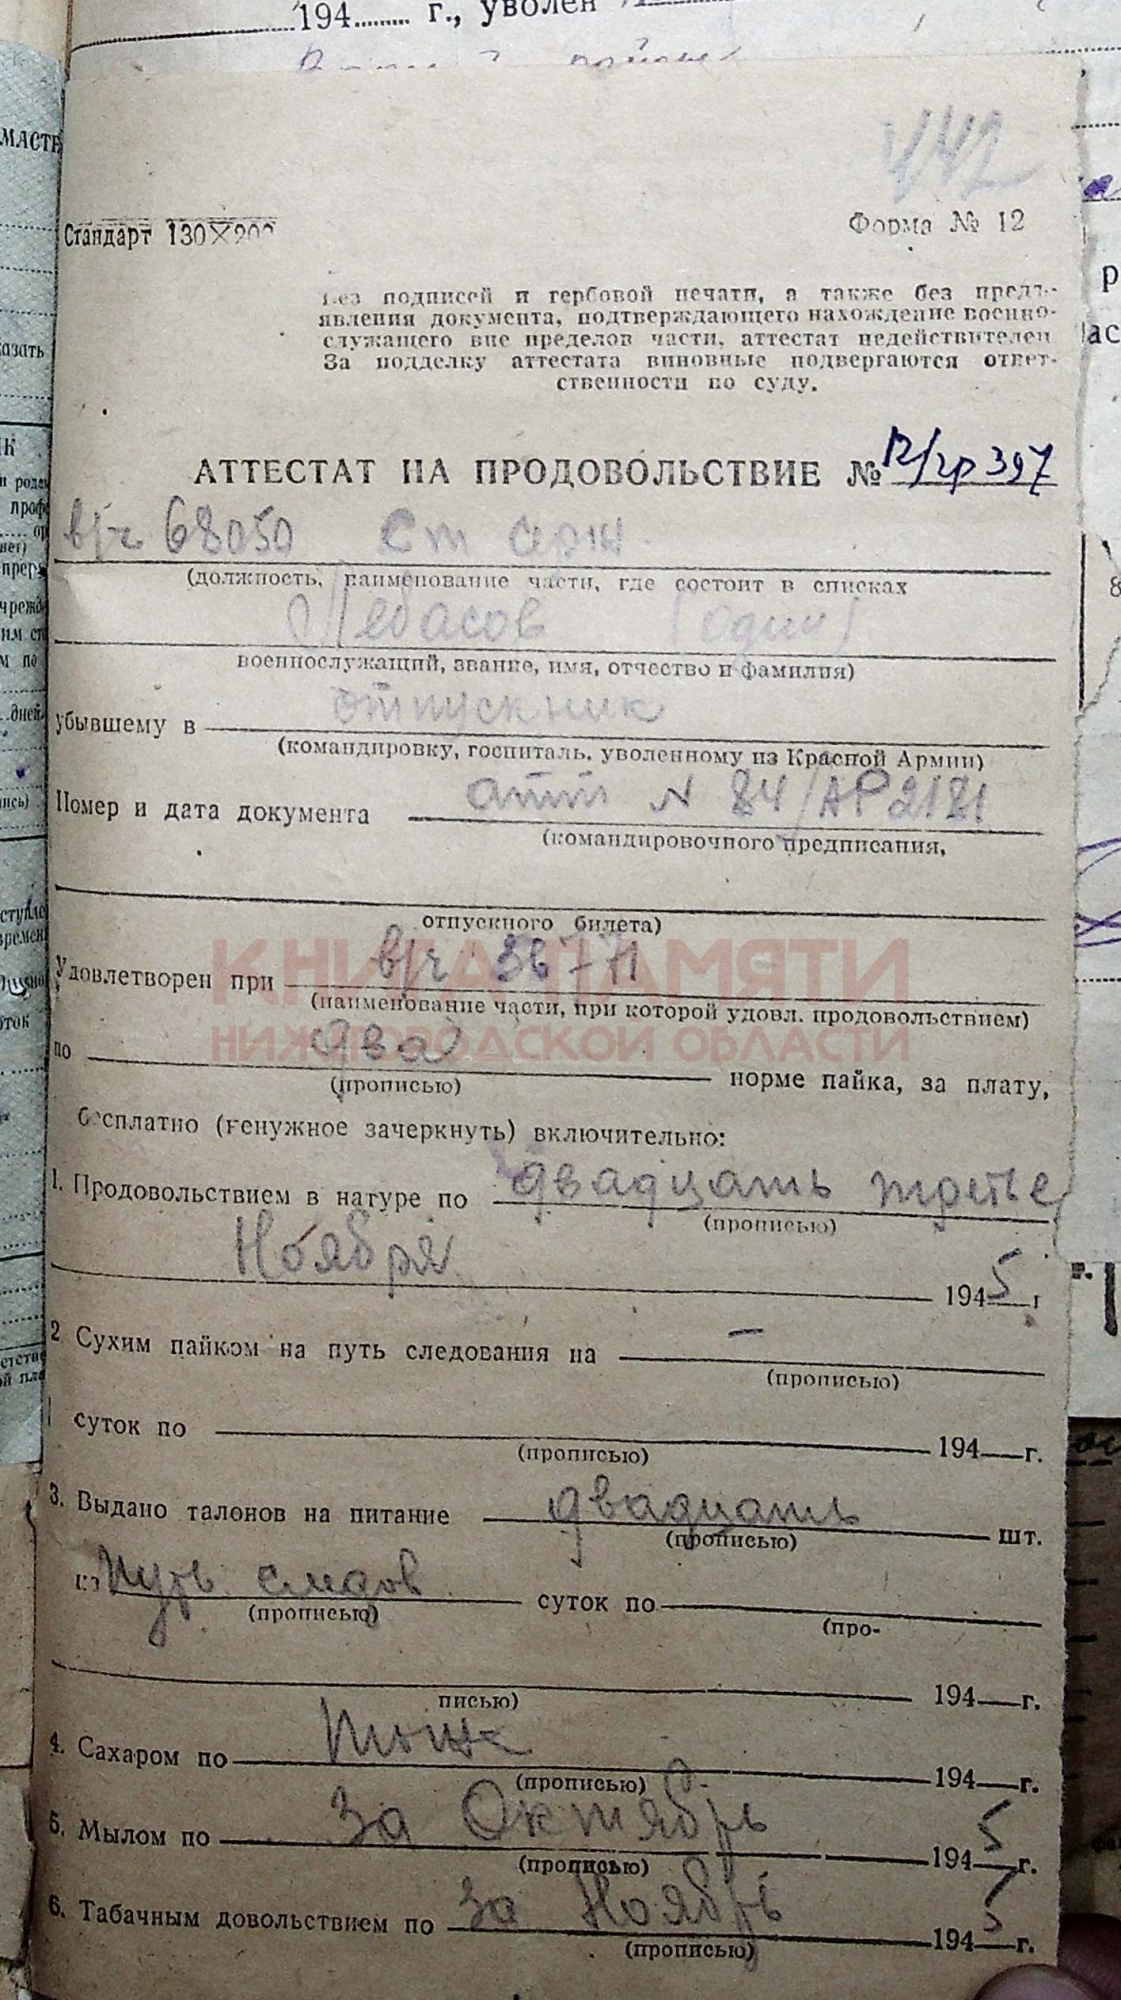 194 г., уволен
442
Стандарт 130×200
Форма № 12
Без подписей и гербовой печати, а также без предъ-
явления документа, подтверждающего нахождение военно-
служащего вне пределов части, аттестат недействителен
За подделку аттестата виновные подвергаются ответ-
ственности по суду.
АТТЕСТАТ НА ПРОДОВОЛЬСТВИЕ № 12/гр 397
в/ч 68050 Ст
(должность, наименование части, где состоит в списках
(один)
военнослужащий, звание, имя, отчество и фамилия)
убывшему в отпускник
(командировку, госпиталь, уволенному из Красной Армии)
Номер и дата документа атт N 84/АР2181
(командировочного предписания,
отпускного билета)
КНИГА ПАМЯТИ
Удовлетворен при в/ч
(наименование части, при которой удовл. продовольствием)
НИЖЕГОРОДСКОЙ ОБЛАСТИ
по два
(прописью) норме пайка, за плату,
бесплатно (ненужное зачеркнуть) включительно:
1. Продовольствием в натуре по двадцать третье
(прописью)
Ноября 1945 г
2 Сухим пайком на путь следования на —
(прописью)
суток по 194 г.
(прописью)
3. Выдано талонов на питание двадцать шт.
(прописью)
на путь следов суток по
(прописью) (про-
194 г.
писью)
4. Сахаром по тоже 194 г.
(прописью)
5. Мылом по за Октябрь 1945 г.
(прописью)
6. Табачным довольствием по за Ноябрь 1945 г.
(прописью)